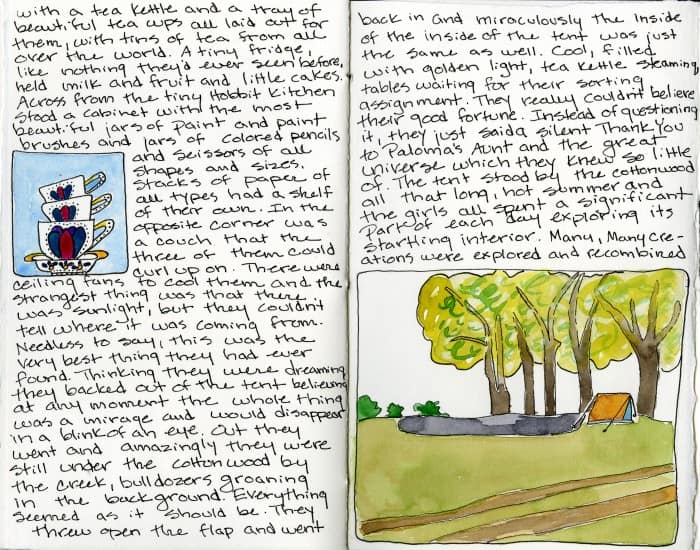 with a tea kettle and a tray of
beautiful tea cups all laid out for
them, with tins of tea from all
over the world. A tiny fridge,
like nothing they'd ever seen before,
held milk and fruit and little cakes.
Across from the tiny Hobbit Kitchen
stood a cabinet with the most
beautiful jars of paint and paint
brushes and jars of colored pencils
and scissors of all
shapes and sizes.
Stacks of paper of
all types had a shelf
of their own. In the
opposite corner was
a couch that the
three of them could
curl up on. There were
ceiling fans to cool them and the
strangest thing was that there
was sunlight, but they couldn't
tell where it was coming from.
Needless to say, this was the
very best thing they had ever
found. Thinking they were dreaming
they backed out of the tent believing
at any moment the whole thing
was a mirage and would disappear
in a blink of an eye. Out they
went and amazingly they were
still under the cottonwood by
the creek, bulldozers groaning
in the background. Everything
seemed as it should be. They
threw open the flap and went
back in and miraculously the inside
of the inside of the tent was just
the same as well. Cool, filled
with golden light, tea kettle steaming,
tables waiting for their sorting
assignment. They really couldn't believe
their good fortune. Instead of questioning
it, they just said a silent Thank You
to Paloma's Aunt and the great
universe which they knew so little
of. The tent stood by the cottonwood
all that long, hot summer and
the girls all spent a significant
Park of each day exploring its
startling interior. Many, Many cre-
ations were explored and recombined